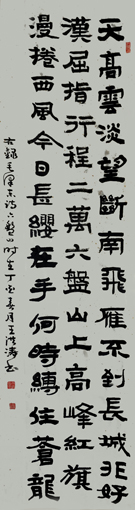 天高雲淡望斷南飛雁不到長城非好
漢屈指行程二萬六盤山上高峰紅旗
漫捲西風今日長纓在手何時縛住蒼龍
右錄毛澤東詩六盤山时在丁月王洪濤書